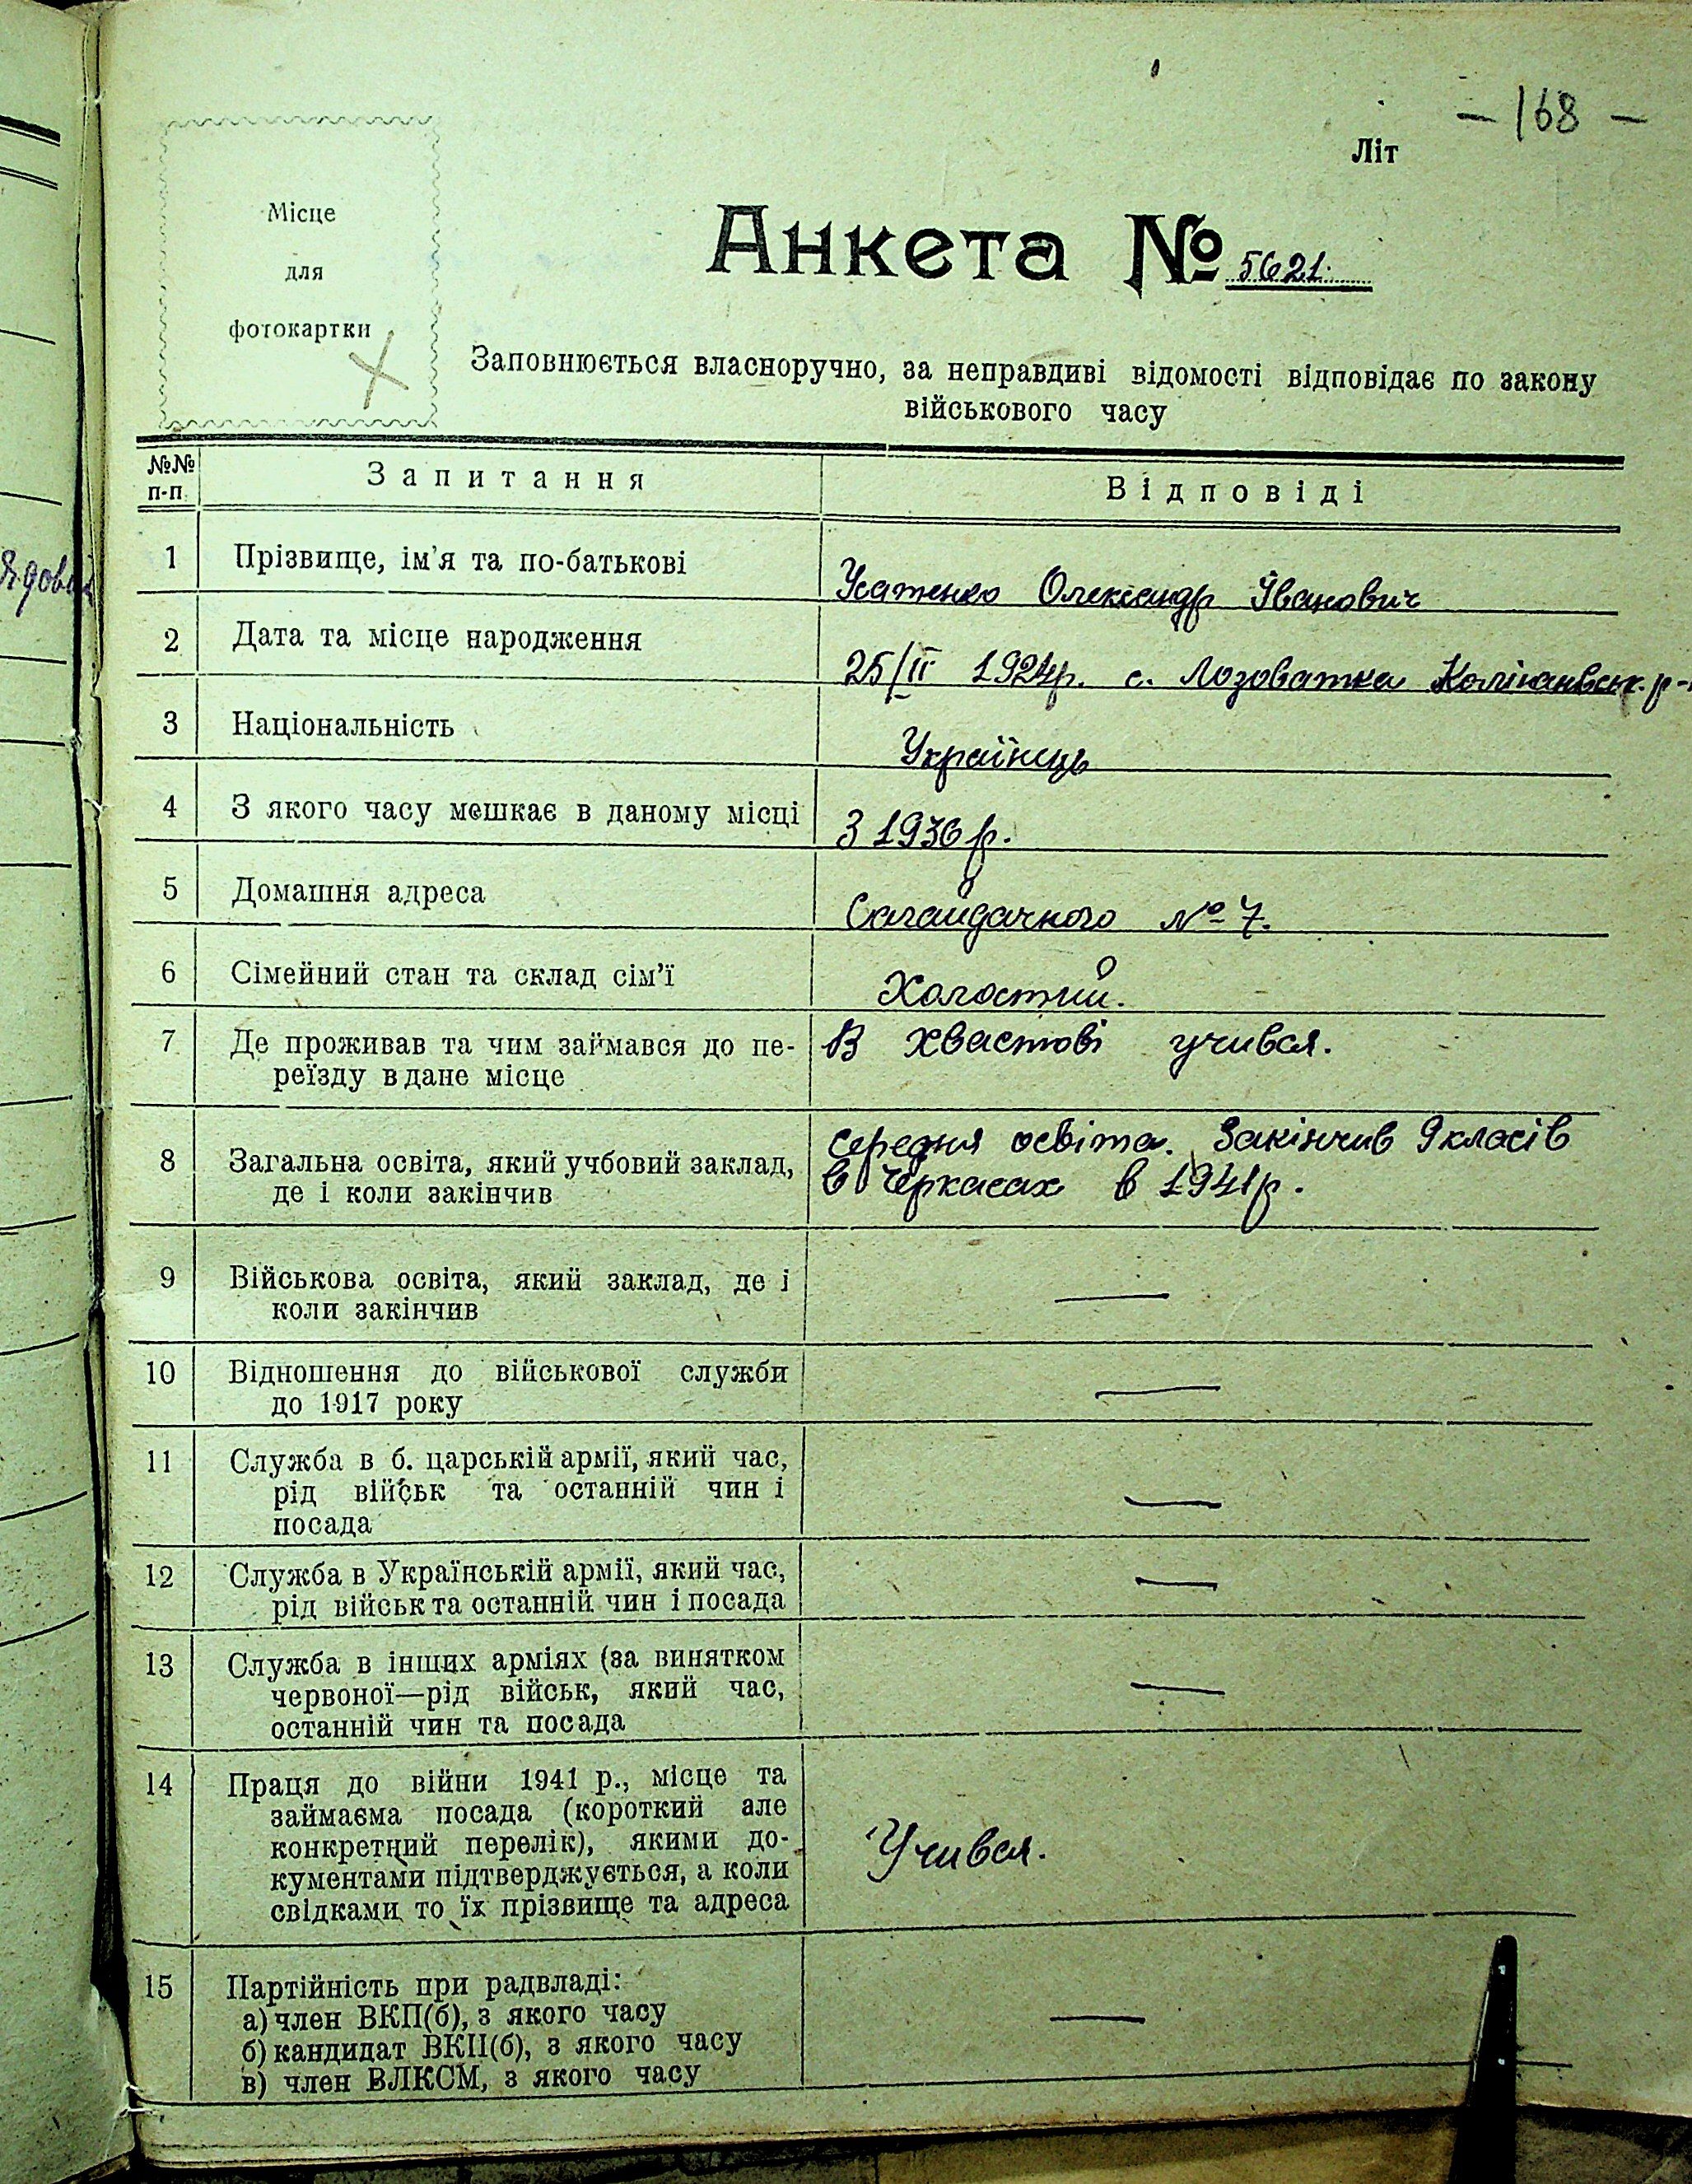 – 168 –
Літ
Місце
для
фотокартки
Анкета № 5621.
Заповнюється власноручно, за неправдиві відомості відповідає по закону
військового часу
№№ п-п
Запитання
Відповіді
1 Прізвище, ім'я та по-батькові
Усатенко Олександр Іванович
2 Дата та місце народження
25/II 1924р. с. Лозоватка
3 Національність
Українець
4 З якого часу мешкає в даному місці
З 1936 р.
5 Домашня адреса
Сагайдачного № 7.
6 Сімейний стан та склад сім'ї
Холостий.
7 Де проживав та чим займався до пе-
реїзду в дане місце
В Хвастові учився.
8 Загальна освіта, який учбовий заклад,
де і коли закінчив
середня освіта. Закінчив 9 класів
в Черкасах в 1941р.
9 Військова освіта, який заклад, де і
коли закінчив
—
10 Відношення до військової служби
до 1917 року
—
11 Служба в б. царській армії, який час,
рід військ та останній чин і
посада
—
12 Служба в Українській армії, який час,
рід військ та останній чин і посада
—
13 Служба в інших арміях (за винятком
червоної—рід військ, який час,
останній чин та посада
—
14 Праця до війни 1941 р., місце та
займаєма посада (короткий але
конкретний перелік), якими до-
кументами підтверджується, а коли
свідками то їх прізвище та адреса
Учився.
15 Партійність при радвладі:
а) член ВКП(б), з якого часу
б) кандидат ВКП(б), з якого часу
в) член ВЛКСМ, з якого часу
—